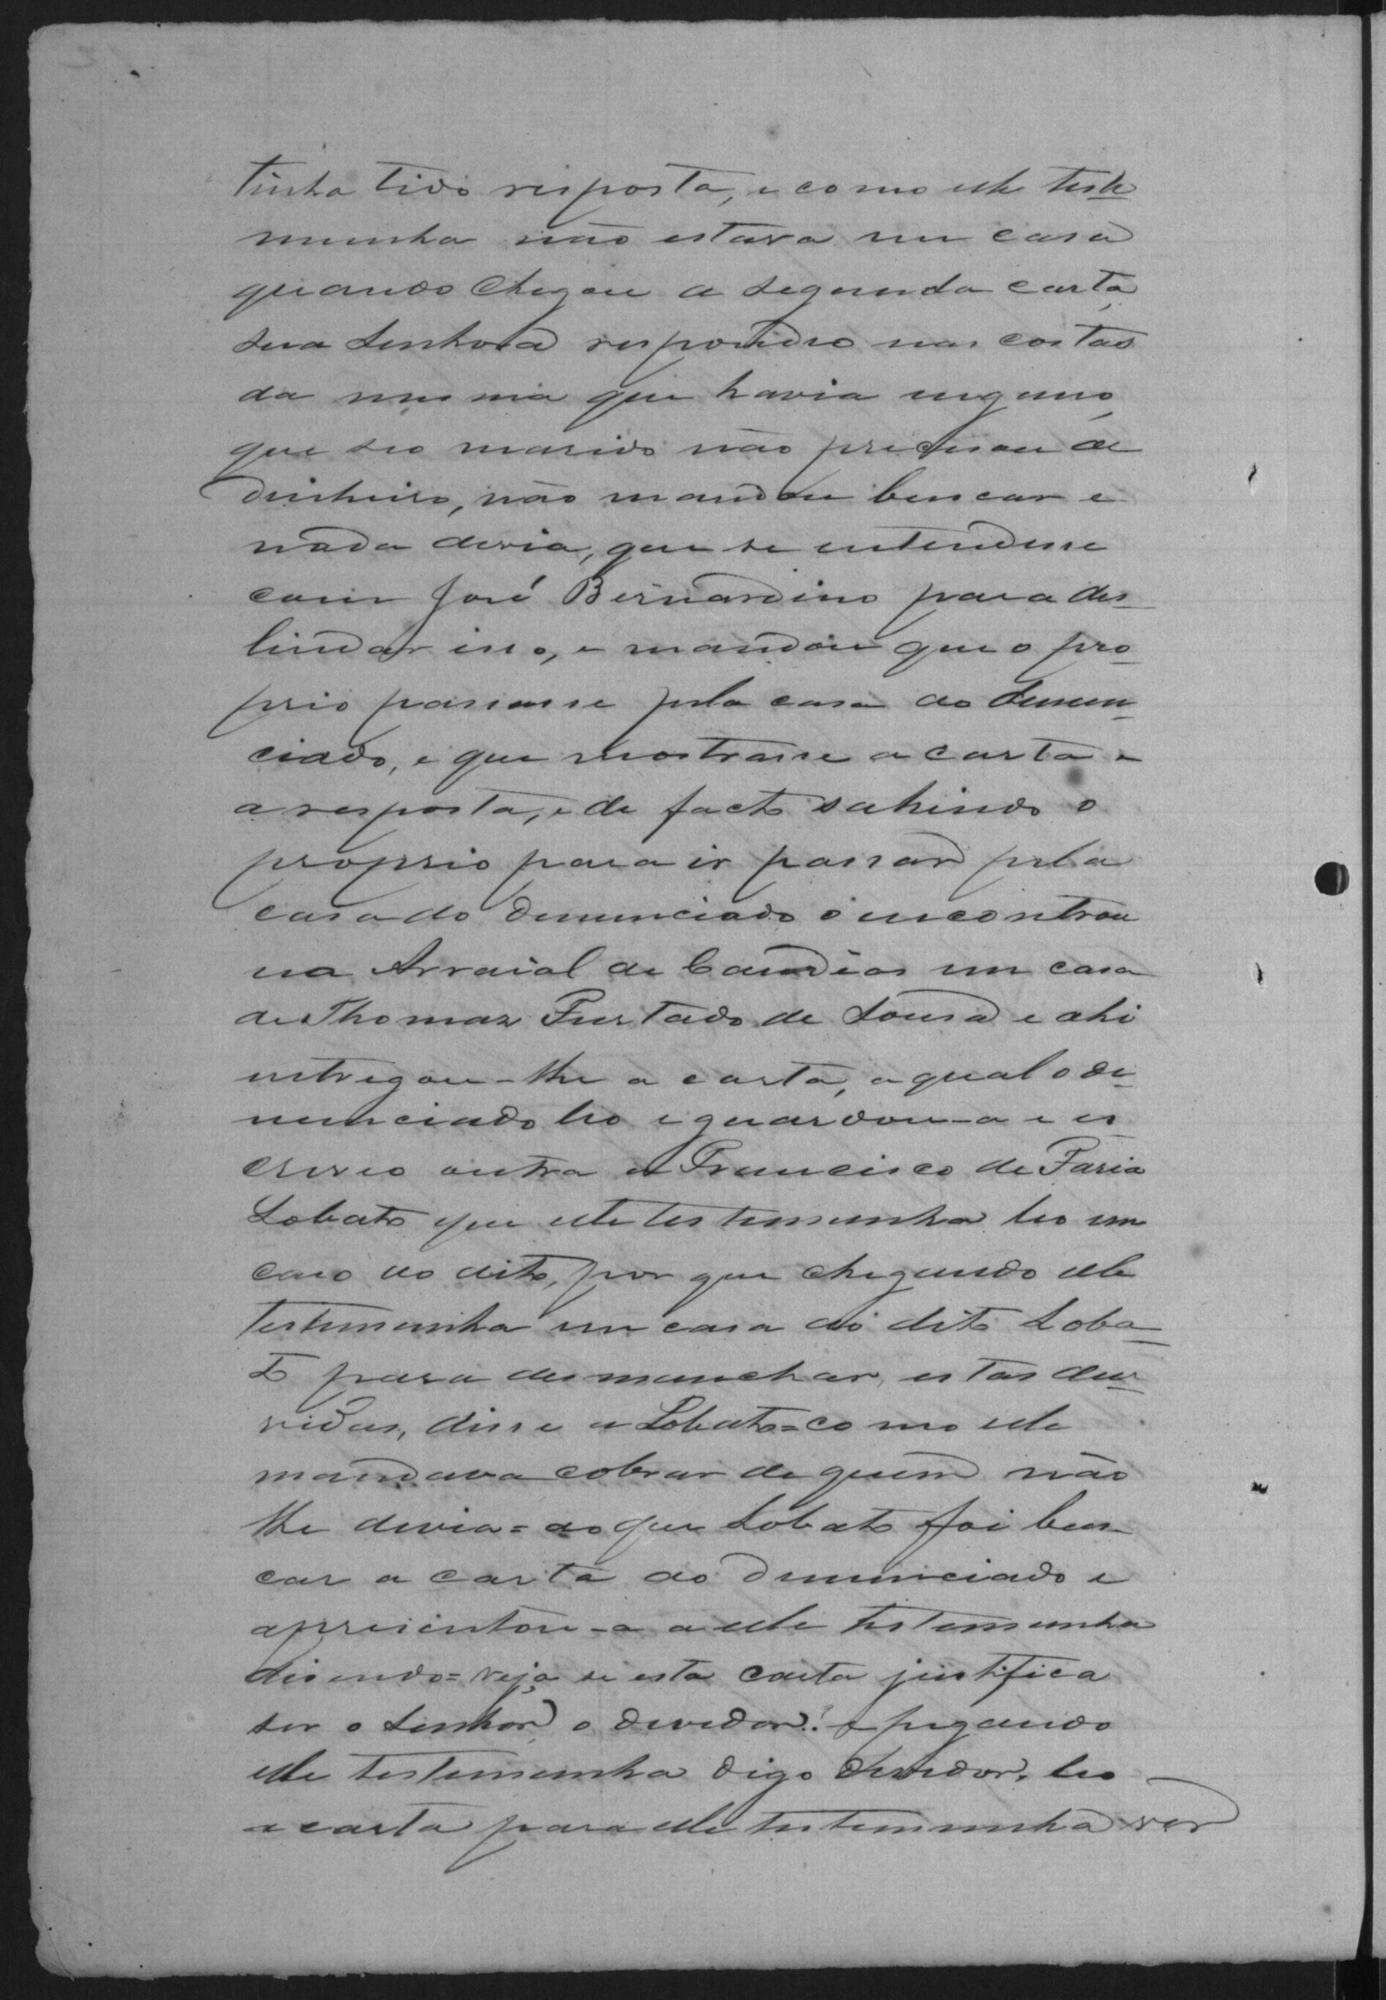 tinha tido resposta, e como elle teste
munha não estava em casa
quando chegou a segunda carta,
sua senhora respondeo nas costas
da mesma que havia engano,
que seo marido não precisou de
dinheiro, não mandou buscar e
nada devia, que se entendesse
com José Bernardino para des-
lindar isso, e mandou que o pro-
prio passasse pela casa do denun-
ciado, e que mostrasse a carta e
a resposta, e de facto sahindo o
proprio para ir passar pela
casa do denunciado o encontrou
no Arraial de Candeas em casa
de Thomaz Furtado de Sousa e ahi
entregou-lhe a carta, a qual o de-
nunciado leo e guardou-a e es
creveo outra a Francisco de Faria
Lobato que elle testemunha leo em
casa do dito, por que chegando elle
testemunha em casa do dito Loba-
to para desmanchar estas du-
vidas, disse a Lobato = como elle
mandava cobrar de quem não
lhe devia = ao que Lobato foi bus-
car a carta do denunciado e
apresentou-a a elle testemunha
disendo = veja se esta carta justifica
ser o senhor o devedor! e pegando
elle testemunha digo devedor, leo
a carta para elle testemunha ver